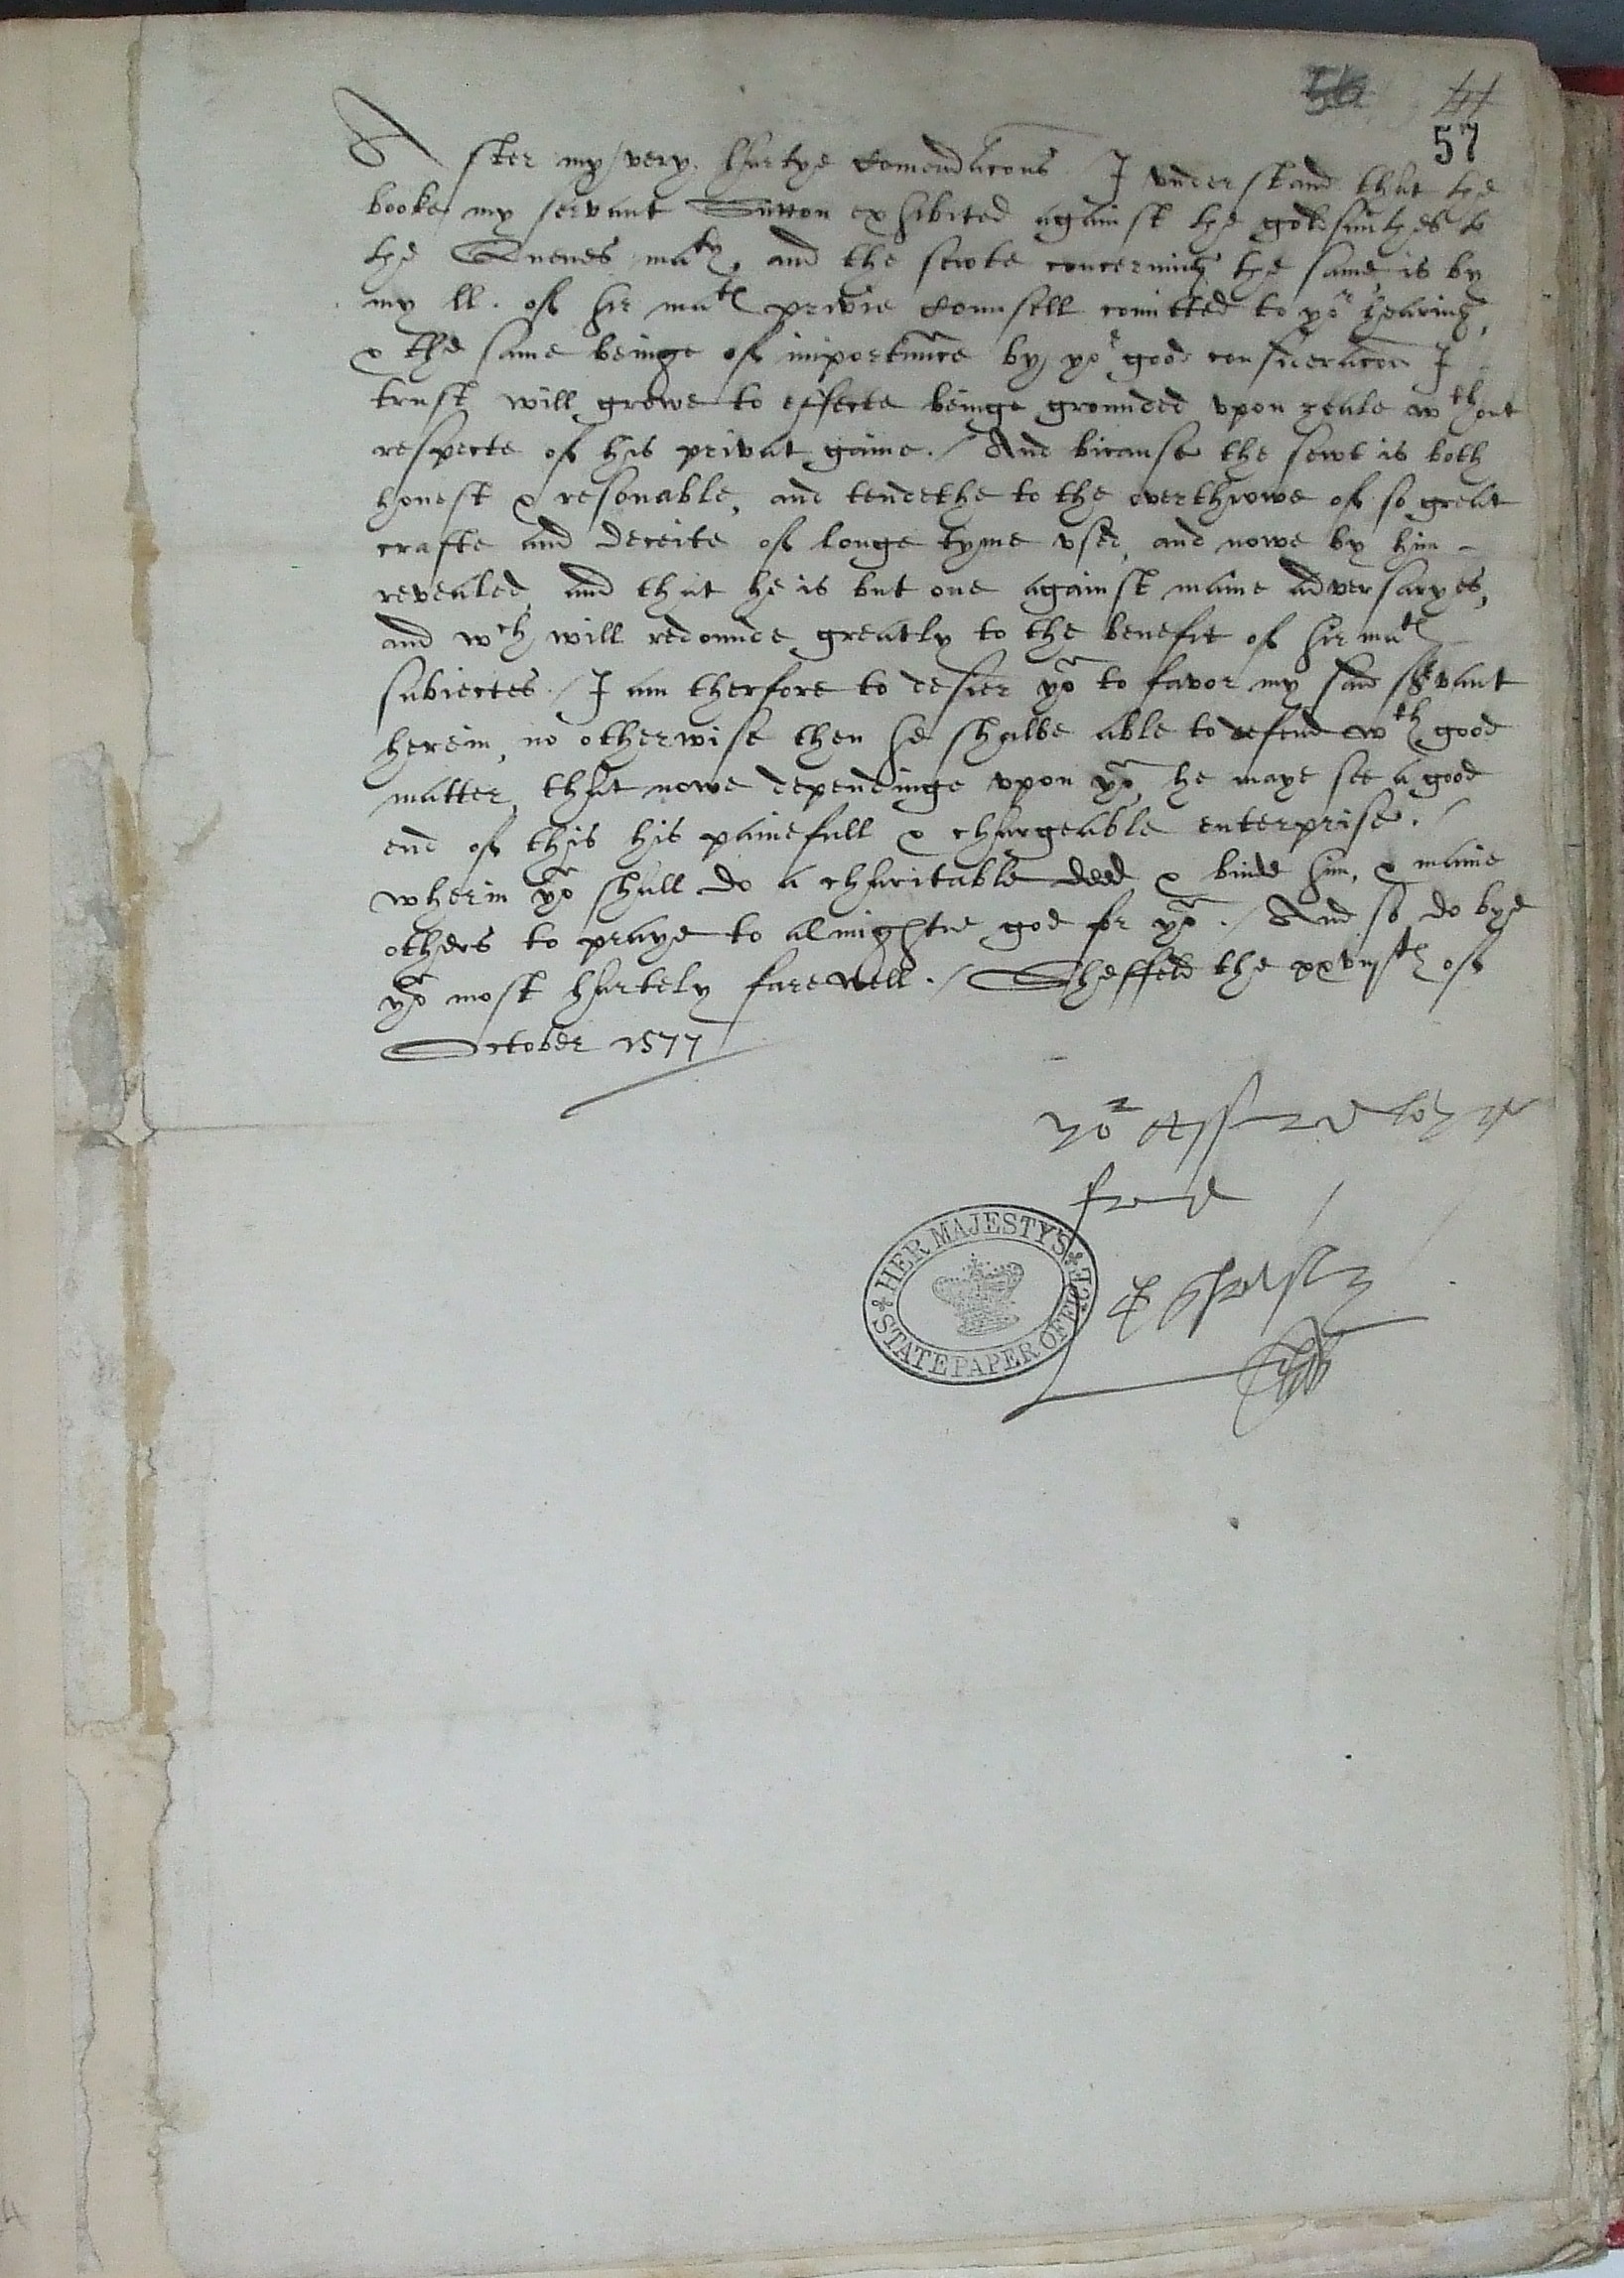 56 44
57
After my very hartye comendacons I understand that the
booke my servant Sutton exhibited against the goldsmithes to
the Quenes maty, and the sewte concerning the same, is by
my ll. of hir mats privie Counsell comitted to yor hearing,
& the same beinge of importance by yor good consideracon I
trust will growe to effecte beinge grounded vpon zeale wthout
respecte of his privat gaine./ And bicause the sewt is both
honest & resonable, and tendethe to the overthrowe of so great
crafte and deceite of longe tyme vsed, and nowe by him
revealed, and that he is but one against manie adversaryes,
and wch will redounde greatly to the benefit of hir mats
subiectes./ I am therfore to desier yo to favor my said servant
herein, no otherwise then he shalbe able to defend wth good
matter, that nowe dependinge vpon yo, he maye see a good
end of this his painefull & chargeable enterprise./
wherin yo shall do a charitable deed & binde him, & manie
others to praye to almightie god for yo./ And so do byd
yo most hartely farewell./ Sheffeld the xxviijth of
October 1577
yor assured lovyng
frend
G Shrewsbury
HER MAJESTY'S STATE PAPER OFFICE